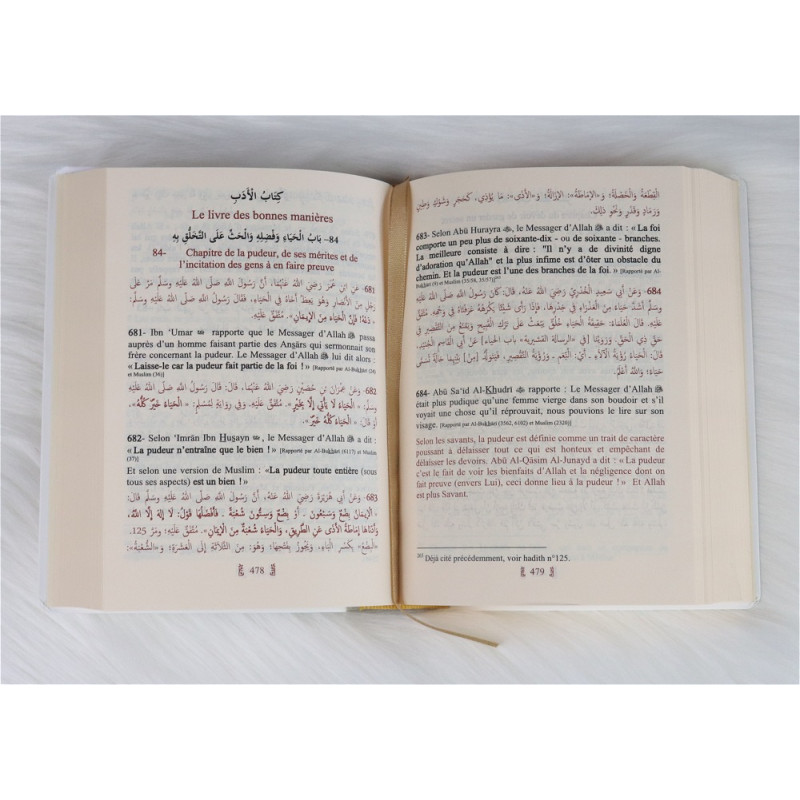 كِتَابُ الْأَدَبِ
Le livre des bonnes manières
84- بَابُ الْحَيَاءِ وَفَضْلِهِ وَالْحَثِّ عَلَى التَّخَلُّقِ بِهِ
84- Chapitre de la pudeur, de ses mérites et de
l'incitation des gens à en faire preuve
681- عَنِ ابْنِ عُمَرَ رَضِيَ اللَّهُ عَنْهُمَا، أَنَّ رَسُولَ اللَّهِ صَلَّى اللَّهُ عَلَيْهِ وَسَلَّمَ مَرَّ عَلَى
رَجُلٍ مِنَ الْأَنْصَارِ وَهُوَ يَعِظُ أَخَاهُ فِي الْحَيَاءِ، فَقَالَ رَسُولُ اللَّهِ صَلَّى اللَّهُ عَلَيْهِ وَسَلَّمَ:
« دَعْهُ؛ فَإِنَّ الْحَيَاءَ مِنَ الْإِيمَانِ ». مُتَّفَقٌ عَلَيْهِ.
681- Ibn 'Umar rapporte que le Messager d'Allah ﷺ passa
auprès d'un homme faisant partie des Anṣârs qui sermonnait son
frère concernant la pudeur. Le Messager d'Allah ﷺ lui dit alors :
« Laisse-le car la pudeur fait partie de la foi ! » [Rapporté par Al-Bukhârî (24)
et Muslim (36)]
682- عَنْ عِمْرَانَ بْنِ حُصَيْنٍ رَضِيَ اللَّهُ عَنْهُمَا، قَالَ: قَالَ رَسُولُ اللَّهِ صَلَّى اللَّهُ عَلَيْهِ
وَسَلَّمَ: « الْحَيَاءُ لَا يَأْتِي إِلَّا بِخَيْرٍ ». مُتَّفَقٌ عَلَيْهِ. وَفِي رِوَايَةٍ لِمُسْلِمٍ: « الْحَيَاءُ خَيْرٌ كُلُّهُ »
« الْحَيَاءُ كُلُّهُ خَيْرٌ ».
682- Selon 'Imrân Ibn Ḥuṣayn, le Messager d'Allah ﷺ a dit :
« La pudeur n'entraîne que le bien ! » [Rapporté par Al-Bukhârî (6117) et Muslim
(37)]
Et selon une version de Muslim : «La pudeur toute entière (sous
tous ses aspects) est un bien ! »
683- عَنْ أَبِي هُرَيْرَةَ رَضِيَ اللَّهُ عَنْهُ، أَنَّ رَسُولَ اللَّهِ صَلَّى اللَّهُ عَلَيْهِ وَسَلَّمَ قَالَ:
« الْإِيمَانُ بِضْعٌ وَسَبْعُونَ ـ أَوْ بِضْعٌ وَسِتُّونَ شُعْبَةً ـ فَأَفْضَلُهَا قَوْلُ: لَا إِلَهَ إِلَّا اللَّهُ،
وَأَدْنَاهَا إِمَاطَةُ الْأَذَى عَنِ الطَّرِيقِ، وَالْحَيَاءُ شُعْبَةٌ مِنَ الْإِيمَانِ». مُتَّفَقٌ عَلَيْهِ؛ وَمَرَّ 125.
«الْبِضْعُ» بِكَسْرِ الْبَاءِ، وَيَجُوزُ بِفَتْحِهَا؛ وَهُوَ: مِنَ الثَّلَاثَةِ إِلَى الْعَشَرَةِ؛ وَ«الشُّعْبَةُ»:
478
الْقِطْعَةُ وَالْخَصْلَةُ؛ وَ«الْإِمَاطَةُ»: الْإِزَالَةُ؛ وَ«الْأَذَى»: مَا يُؤْذِي، كَحَجَرٍ وَشَوْكٍ وَطِينٍ
وَرَمَادٍ وَقَذَرٍ وَنَحْوِ ذَلِكَ.
683- Selon Abû Hurayra, le Messager d'Allah ﷺ a dit : « La foi
comporte un peu plus de soixante-dix - ou de soixante - branches.
La meilleure consiste à dire : "Il n'y a de divinité digne
d'adoration qu'Allah" et la plus infime est d'ôter un obstacle du
chemin. Et la pudeur est l'une des branches de la foi. » [Rapporté par Al-
Bukhârî (9) et Muslim (35/58, 35/57)]
684- وَعَنْ أَبِي سَعِيدٍ الْخُدْرِيِّ رَضِيَ اللَّهُ عَنْهُ، قَالَ: كَانَ رَسُولُ اللَّهِ صَلَّى اللَّهُ عَلَيْهِ
وَسَلَّمَ أَشَدَّ حَيَاءً مِنَ الْعَذْرَاءِ فِي خِدْرِهَا، فَإِذَا رَأَى شَيْئًا يَكْرَهُهُ عَرَفْنَاهُ فِي وَجْهِهِ. مُتَّفَقٌ
عَلَيْهِ. قَالَ الْعُلَمَاءُ: حَقِيقَةُ الْحَيَاءِ خُلُقٌ يَبْعَثُ عَلَى تَرْكِ الْقَبِيحِ وَيَمْنَعُ مِنَ التَّقْصِيرِ فِي
حَقِّ ذِي الْحَقِّ. وَرَوَيْنَا [فِي «الرِّسَالَةِ الْقُشَيْرِيَّةِ» بَابُ الْحَيَاءِ] عَنْ أَبِي الْقَاسِمِ الْجُنَيْدِ
قَالَ: الْحَيَاءُ رُؤْيَةُ الْآلَاءِ ـ أَيْ: النِّعَمِ ـ وَرُؤْيَةُ التَّقْصِيرِ، فَيَتَوَلَّدُ [مِنْ] بَيْنِهِمَا حَالَةٌ
وَاللَّهُ أَعْلَمُ.
684- Abû Sa'îd Al-Khudrî rapporte : Le Messager d'Allah ﷺ
était plus pudique qu'une femme vierge dans son boudoir et s'il
voyait une chose qu'il réprouvait, nous pouvions le lire sur son
visage. [Rapporté par Al-Bukhârî (3562, 6102) et Muslim (2320)]
Selon les savants, la pudeur est définie comme un trait de caractère
poussant à délaisser tout ce qui est honteux et empêchant de
délaisser les devoirs. Abû Al-Qâsim Al-Junayd a dit : « La pudeur
c'est le fait de voir les bienfaits d'Allah et la négligence dont on
fait preuve (envers Lui), ceci donne lieu à la pudeur ! » Et Allah
est plus Savant.
Déjà cité précédemment, voir hadith n°125.
479